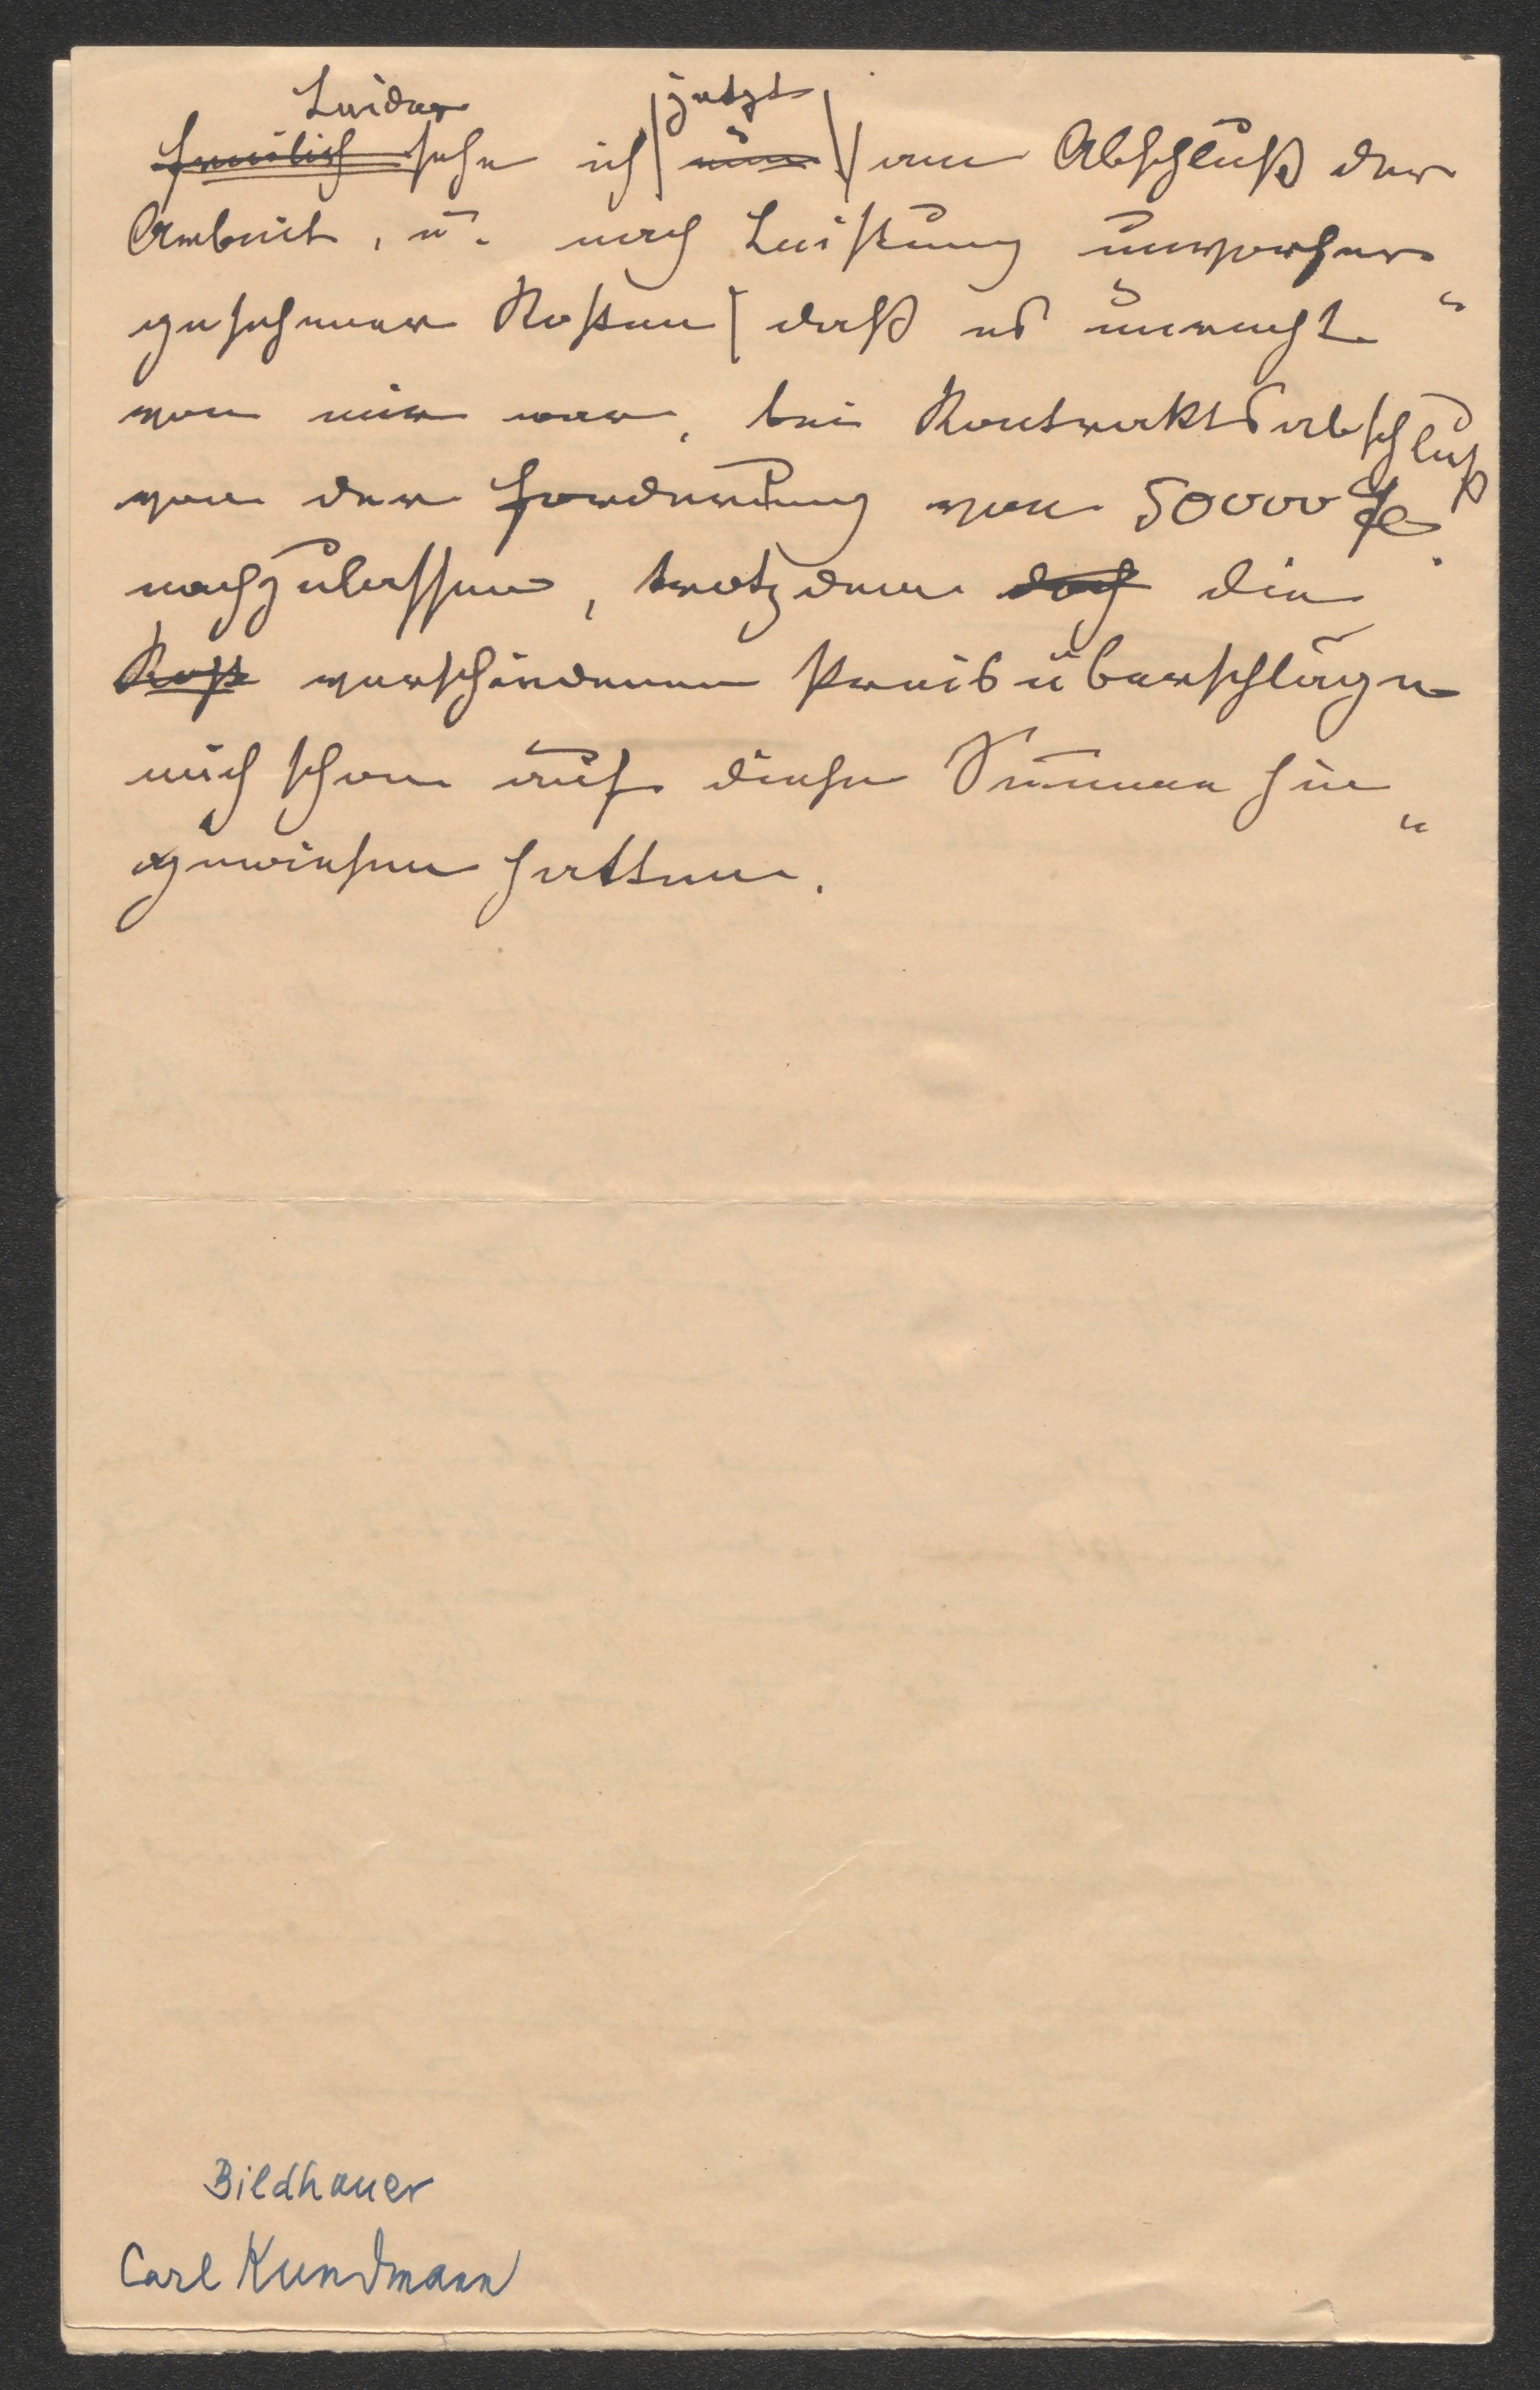 Leider jetzt
freilich sehe ich nun am Abschluß der
Arbeit, u. nach Leistung unvorher
gesehener Kosten daß es unrecht
von mir war, bei Kontraktsabschluß
von der Forderung von 50000 fl
nachzulassen, trotzdem doch die
Kost verschiedenen Preisüberschläge
mich schon auf diese Summe hin
gewiesen hatten.
Bildhauer
Carl Kundmann